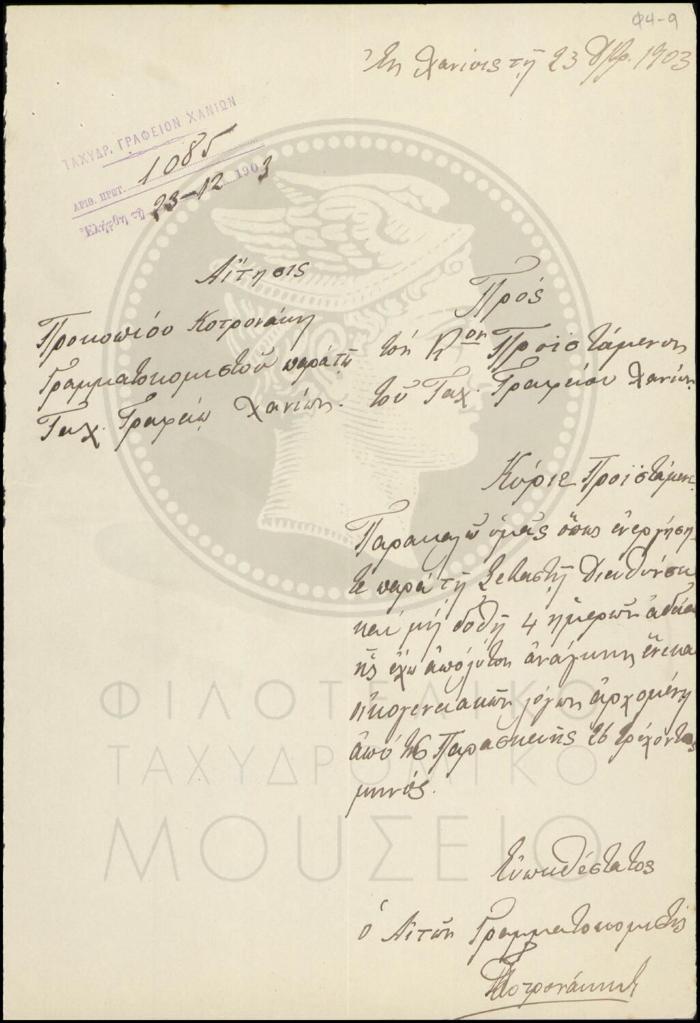 Φ4-9
Ἐν Χανίοις τῇ 23 Δβρ. 1903
ΤΑΧΥΔΡ. ΓΡΑΦΕΙΟΝ ΧΑΝΙΩΝ
ΑΡΙΘ. ΠΡΩΤ. 1085
Ἐλήφθη τῇ 23-12 1903
Αἴτησις
Προκοπίου Κοτρωνάκη
Γραμματοκομιστοῦ παρὰ τῷ
Ταχ. Γραφείῳ Χανίων.
Πρός
τὸν Κον Προϊστάμενον
τοῦ Ταχ. Γραφείου Χανίων
Κύριε Προϊστάμενε
Παρακαλῶ ὑμᾶς ὅπως ἐνεργήση
τε παρὰ τῇ Σεβαστῇ Διευθύνσει
καὶ μοὶ δοθῇ 4 ἡμερῶν ἄδεια
ἧς ἔχω ἀπόλυτον ἀνάγκην ἕνεκα
οἰκογενειακῶν λόγων ἀρχομένη
ἀπὸ τῆς Παρασκευῆς 26 τρέχοντος
μηνός.
Εὐπειθέστατος
ὁ Αἰτῶν Γραμματοκομιστὴς
ΦΙΛΟΤΕΛΙΚΟ
ΤΑΧΥΔΡΟΜΙΚΟ
ΜΟΥΣΕΙΟ